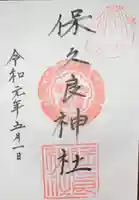 保久良神社
令和元年五月一日